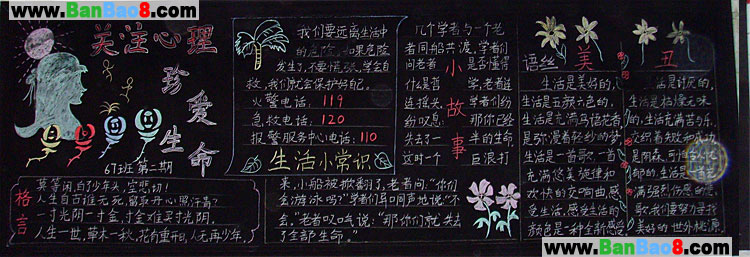 www.BanBao8.com
关注心理
珍爱生命
67班 第二期
我们要远离生活中
的危险,如果危险
发生了,不要慌张,学会自
救,我们就会保护好自己。
火警电话:119
急救电话:120
报警服务中心电话:110
生活小常识
格言
莫等闲,白了少年头,空悲切!
人生自古谁无死,留取丹心照汗青?
一寸光阴一寸金,寸金难买寸光阴。
人生一世,草木一秋,花有重开日,人无再少年。
小故事
几个学者与一个老
者同船共渡,学者们
问老者是否懂得
什么是哲学,老者连
连摇头,学者们纷
纷叹息:那你已经
失去了一半的生命
这时一个巨浪打
来,小船被掀翻了,老者问:“你们
会游泳吗?”学者们异口同声地说“不
会。”老者叹口气说:“那你们就失去
了全部生命。
语丝 美
生活是美好的,
生活是五颜六色的,
生活是充满鸟语花香
是弥漫着轻纱的梦,
生活是一首歌,一首
充满悠美旋律和
欢快的交响曲感
受生活,感受生活的
颜色是一种全新感受
丑
生活是讨厌的,
生活是枯燥无味
的,生活充满苦与乐
交织着失败和成功
是阴森、可怕
的,生活是
满强烈伤感的悲
歌,我们要努力寻找
美好的世外桃源
www.BanBao8.com